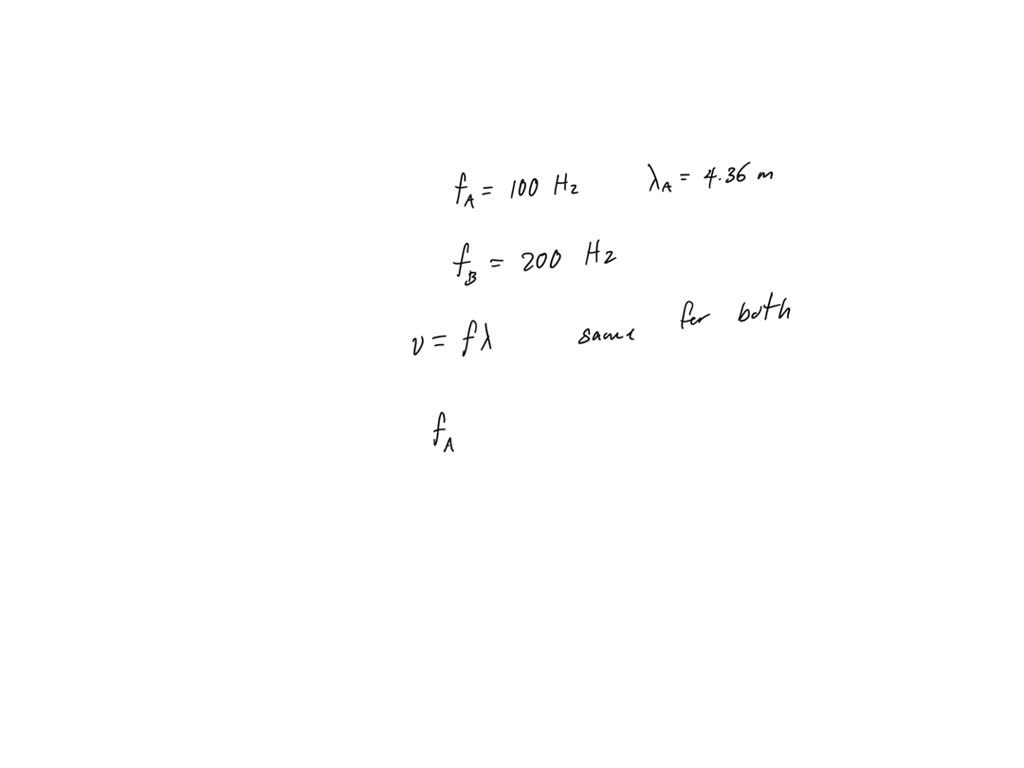 f_A = 100 Hz λ_A = 4.36 m
f_B = 200 Hz
v = fλ same for both
f_A